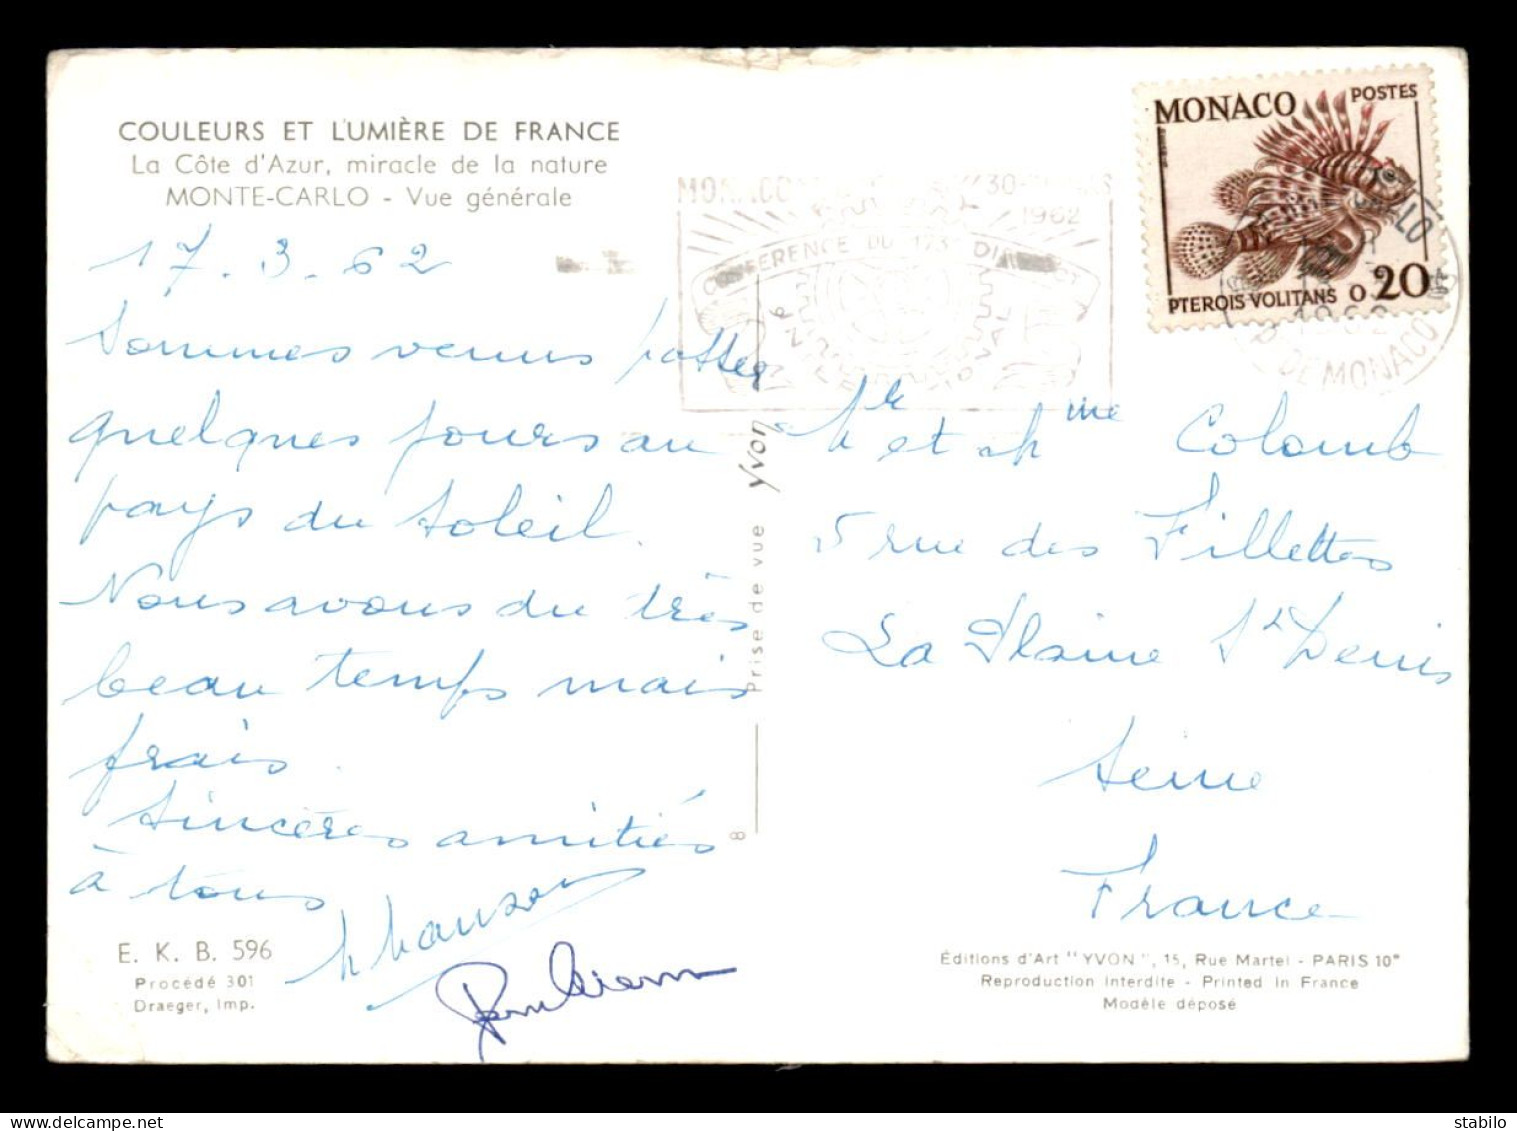 COULEURS ET LUMIÈRE DE FRANCE
La Côte d'Azur, miracle de la nature
MONTE-CARLO - Vue générale
17.3.62
Sommes venus passer
quelques jours au
pays du soleil.
Nous avons du très
beau temps mais
frais.
Sincères amitiés
à tous
E. K. B. 596
Procédé 301
Draeger, Imp.
Prise de vue Yvon
8
MONACO 1962
CONFERENCE DU 173e DISTRICT
MONACO POSTES
PTEROIS VOLITANS 0 20
1962
P DE MONACO
Mr et Mme Colomb
5 rue des Fillettes
La Plaine St Denis
Seine
France
Éditions d'Art "YVON", 15, Rue Martel - PARIS 10e
Reproduction Interdite - Printed in France
Modèle déposé
stabilo